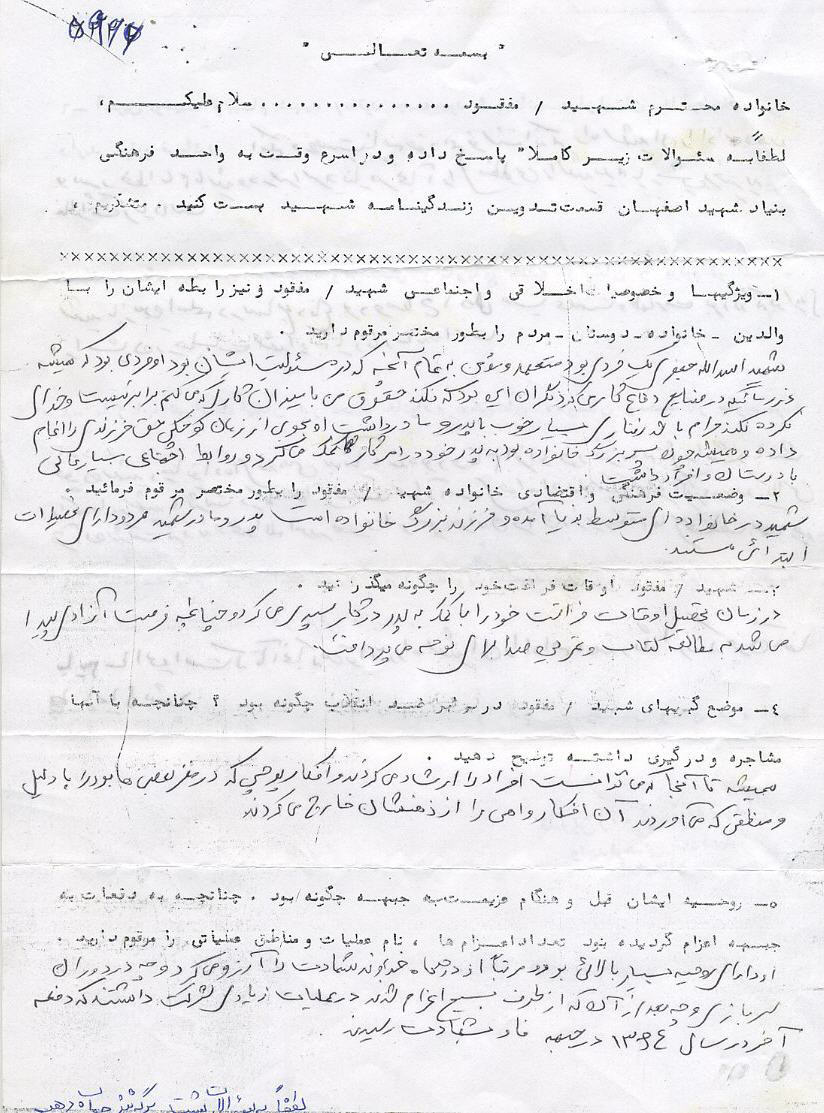 ۵۹۹۷
" بسمه تعالی "
خانواده محترم شهید / مفقود ............... سلام علیکم،
لطفاً به سئوالات زیر کاملاً" پاسخ داده و در اسرع وقت به واحد فرهنگی
بنیاد شهید اصفهان قسمت تدوین زندگینامه شهید پست کنید . متشکریم
××××××××××××××××××××××××××××××××××××××××××××××××××××××××××××
۱- ویژگیها و خصوصیات اخلاقی و اجتماعی شهید / مفقود و نیز رابطه ایشان را با
والدین - خانواده - دوستان - مردم را بطور مختصر مرقوم دارید .
شهید اسدالله جعفری یک فردی بود متعهد و مؤمن به تمام آنچه که در مسئولیت ایشان بود او فردی بود که همیشه
در صنایع دفاع کار می کرد نگران این بود که نکند حقوق من با میزان کاری که می کنم برابر نیست و خدای
نکرده نکند حرام باشد رفتاری بسیار خوب با پدر و مادر داشت او بخوبی از زمان کودکی حق فرزندی را انجام
داده و همیشه چون پسر بزرگ خانواده بود به پدر خود در امر کار کمک می کرد و روابط اجتماعی بسیار عالی
با دوستان و افراد داشت
۲- وضعیت فرهنگی و اقتصادی خانواده شهید / مفقود را بطور مختصر مرقوم فرمائید .
شهید در خانواده ای متوسط بدنیا آمده و فرزند بزرگ خانواده است پدر و مادر شهید هر دو دارای تحصیلات
ابتدائی هستند.
۳- شهید / مفقود اوقات فراغت خود را چگونه میگذرانید .
در زمان تحصیل اوقات فراغت خود را با کمک به پدر در کار سپری می کرد و چنانچه فرصت آزادی پیدا
می شد به مطالعه کتاب و می پرداخت.
٤- موضع گیریهای شهید / مفقود در برابر ضد انقلاب چگونه بود ؟ چنانچه با آنها
مشاجره و درگیری داشته توضیح دهید .
همیشه تا آنجا که می توانست افراد را ارشاد می کردند و افکار پوچی که در مغز بعضی ها بود را با دلیل
و منطقی که می آوردند آن افکار واهی را از ذهنشان خارج می کردند
۵- روحیه ایشان قبل و هنگام عزیمت به جبهه چگونه بود . چنانچه به دفعات به
جبهه اعزام گردیده بود تعداد اعزام ها ، نام عملیات و مناطق عملیاتی را مرقوم دارید .
او دارای روحیه بسیار بالائی بود و مرتباً از درگاه خداوند شهادت را آرزو می کرد و چه در دوران
سربازی و چه بعد از آن که از طرف بسیج اعزام شدند در عملیات زیادی شرکت داشتند که دفعه
آخر در سال ۱۳۶٤ در جبهه فاو بشهادت رسیدند.
لطفاً به سئوالات پشت برگه نیز جواب دهید